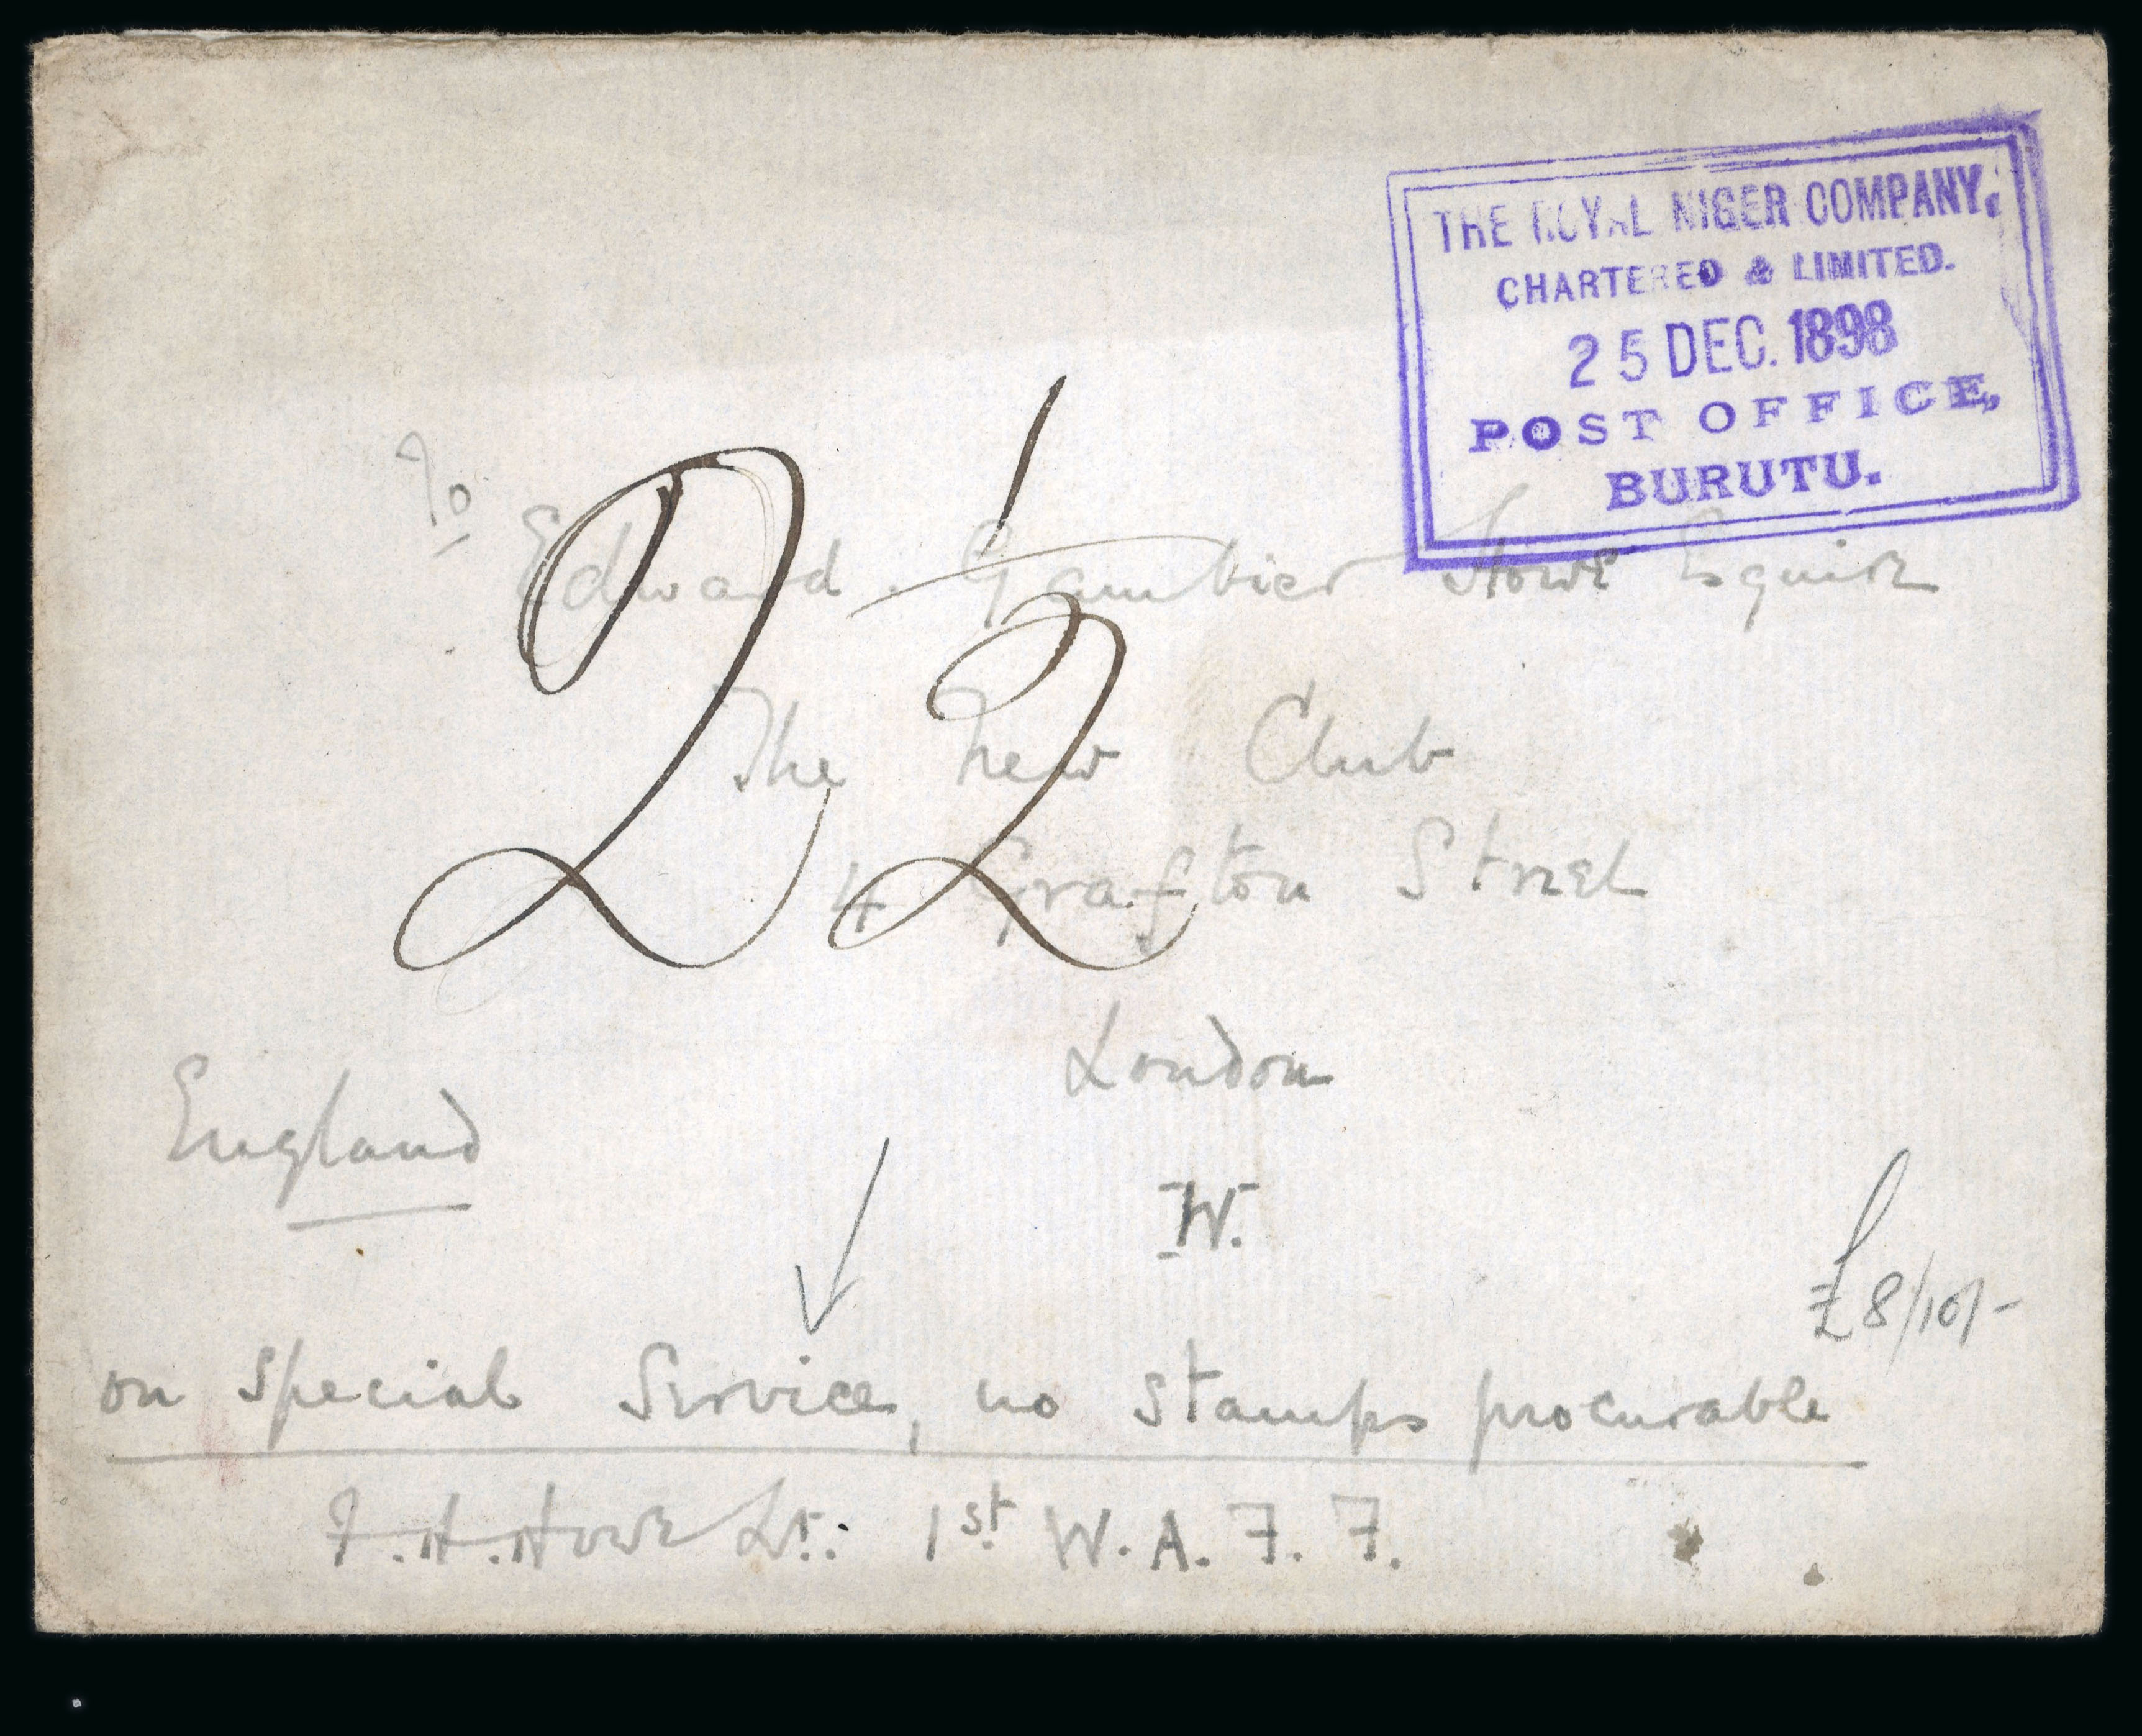 THE ROYAL NIGER COMPANY,
CHARTERED & LIMITED.
25 DEC. 1898
POST OFFICE,
BURUTU.
2 1/2
To
Edward Gambier Howe Esquire
The New Club
4 Grafton Street
London
W.
England
£8/10/-
on Special Service, no stamps procurable
F.H.Howe Lt: 1st W.A.F.F.